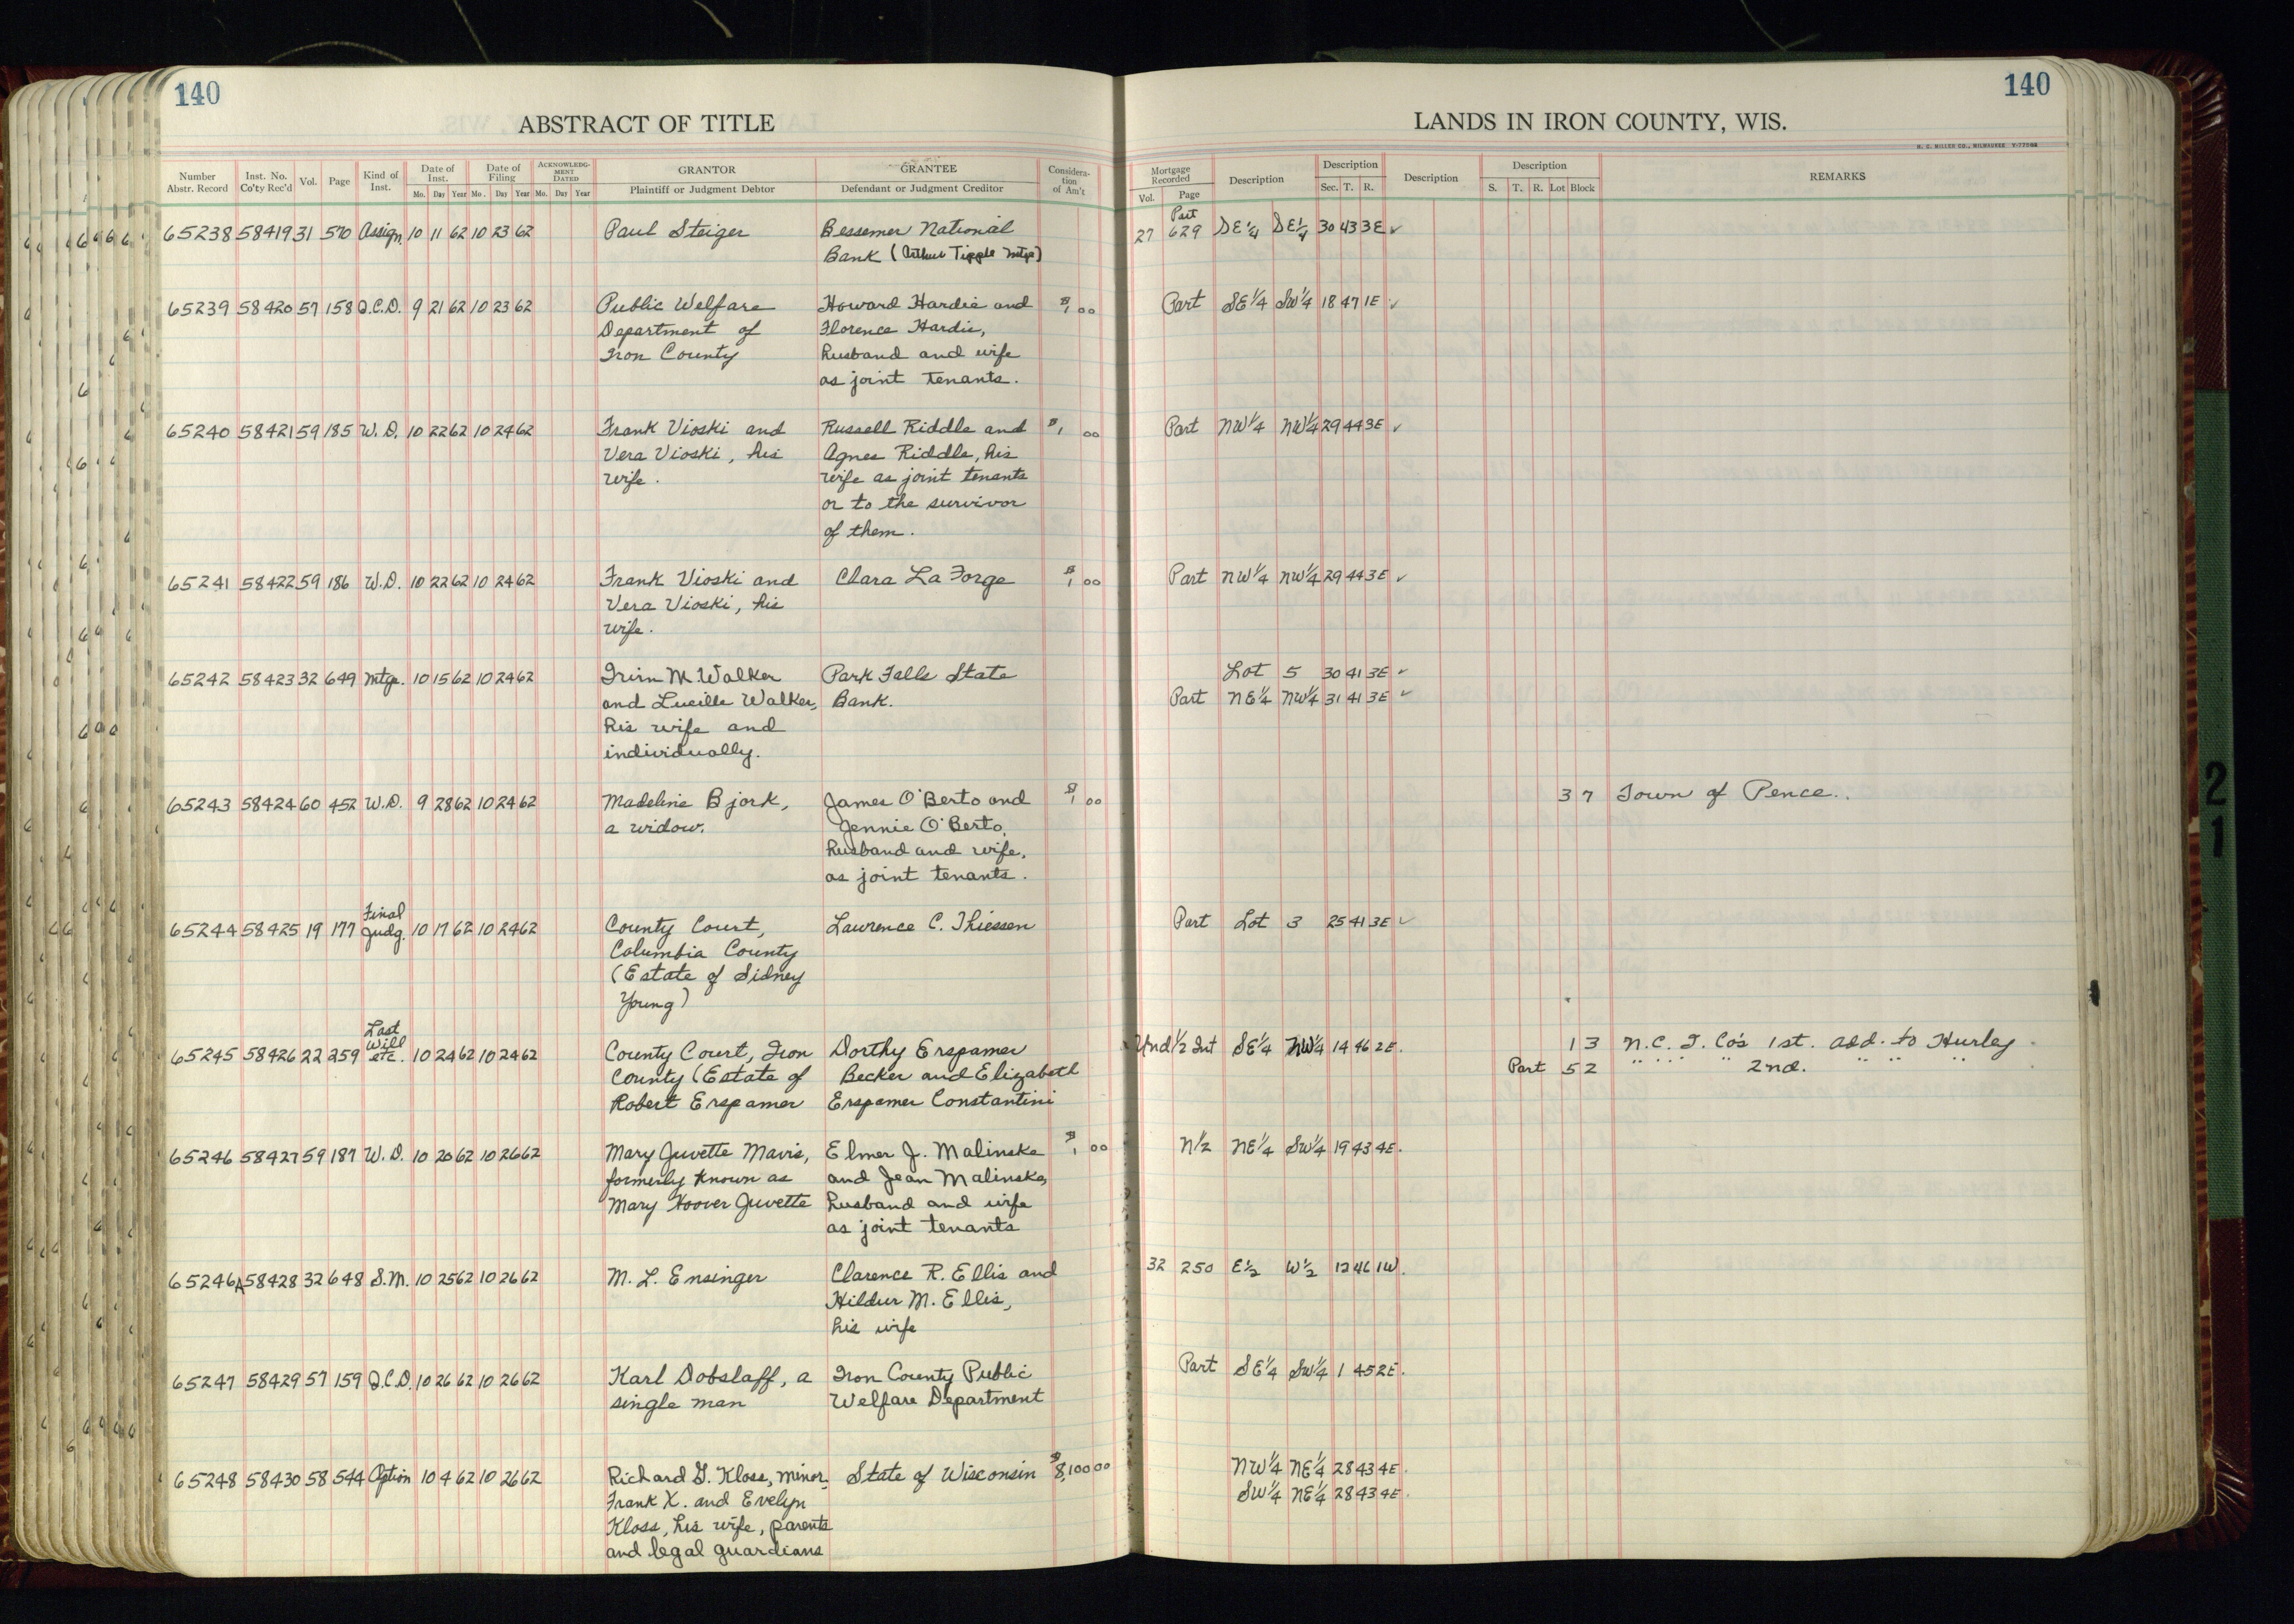 140
140
ABSTRACT OF TITLE
LANDS IN IRON COUNTY, WIS.
H. C. MILLER CO., MILWAUKEE
Number Abstr. Record | Inst. No. Co'ty Rec'd | Vol. | Page | Kind of Inst. | Date of Inst. Mo. Day Year | Date of Filing Mo. Day Year | ACKNOWLEDGMENT DATED Mo. Day Year | GRANTOR Plaintiff or Judgment Debtor | GRANTEE Defendant or Judgment Creditor | Consideration of Am't
Mortgage Recorded Vol. Page | Description | Description Sec. T. R. | Description | Description S. T. R. Lot Block | REMARKS
65238 58419 31 570 Assign. 10 11 62 10 23 62 Paul Steiger Bessemer National 27 Part 629 SE 1/4 SE 1/4 30 43 3E ✓
Bank (Arthur Tipple Mtge)
65239 58420 57 158 Q.C.D. 9 21 62 10 23 62 Public Welfare Howard Hardie and $1 00 Part SE 1/4 SW 1/4 18 47 1E ✓
Department of Florence Hardie,
Iron County husband and wife
as joint tenants.
65240 58421 59 185 W.D. 10 22 62 10 24 62 Frank Vioski and Russell Riddle and $1 00 Part NW 1/4 NW 1/4 29 44 3E ✓
Vera Vioski, his Agnes Riddle, his
wife. wife as joint tenants
or to the survivor
of them.
65241 58422 59 186 W.D. 10 22 62 10 24 62 Frank Vioski and Clara La Forge $1 00 Part NW 1/4 NW 1/4 29 44 3E ✓
Vera Vioski, his
wife.
65242 58423 32 649 Mtge. 10 15 62 10 24 62 Irvin M. Walker Park Falls State Lot 5 30 41 3E ✓
and Lucille Walker, Bank. Part NE 1/4 NW 1/4 31 41 3E ✓
his wife and
individually.
65243 58424 60 452 W.D. 9 28 62 10 24 62 Madeline Bjork, James O'Berto and $1 00 3 7 Town of Pence.
a widow. Jennie O'Berto,
husband and wife,
as joint tenants.
65244 58425 19 177 Final Judg. 10 17 62 10 24 62 County Court, Lawrence C. Thiessen Part Lot 3 25 41 3E ✓
Columbia County
(Estate of Sidney
Young)
65245 58426 22 259 Last Will etc. 10 24 62 10 24 62 County Court, Iron Dorthy Erspamer Und 1/2 Int SE 1/4 NW 1/4 14 46 2E. 1 3 N.C. I. Co's 1st. add. to Hurley
County (Estate of Becker and Elizabeth Part 5 2 " " " " 2nd. " " "
Robert Erspamer Erspamer Constantini
65246 58427 59 187 W.D. 10 20 62 10 26 62 Mary Juvette Mavis, Elmer J. Malinske $1 00 N 1/2 NE 1/4 SW 1/4 19 43 4E.
formerly known as and Jean Malinske,
Mary Hoover Juvette husband and wife
as joint tenants
65246A 58428 32 648 S.M. 10 25 62 10 26 62 M. L. Ensinger Clarence R. Ellis and 32 250 E 1/2 W 1/2 12 46 1W.
Hildur M. Ellis,
his wife
65247 58429 57 159 Q.C.D. 10 26 62 10 26 62 Karl Dobslaff, a Iron County Public Part SE 1/4 SW 1/4 1 45 2E.
single man Welfare Department
65248 58430 58 544 Option 10 4 62 10 26 62 Richard G. Kloss, minor, State of Wisconsin $8,100 00 NW 1/4 NE 1/4 28 43 4E.
Frank X. and Evelyn SW 1/4 NE 1/4 28 43 4E.
Kloss, his wife, parents
and legal guardians
21